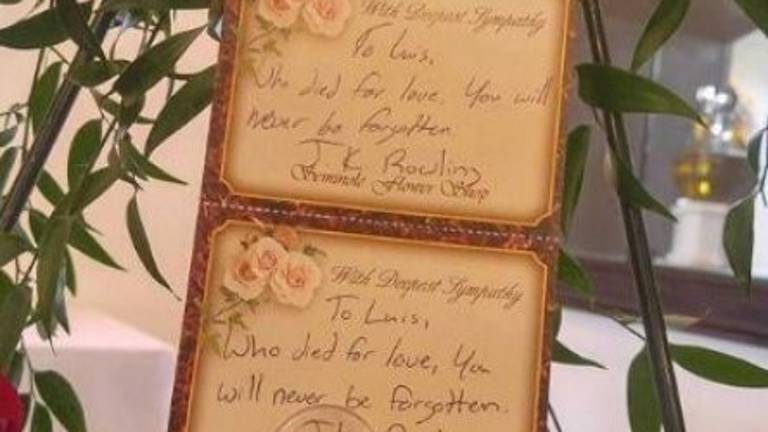 With Deepest Sympathy
To Luis,
Who died for love. You will
never be forgotten
J K Rowling
Seminole Flower Shop
With Deepest Sympathy
To Luis,
Who died for love, You
will never be forgotten.